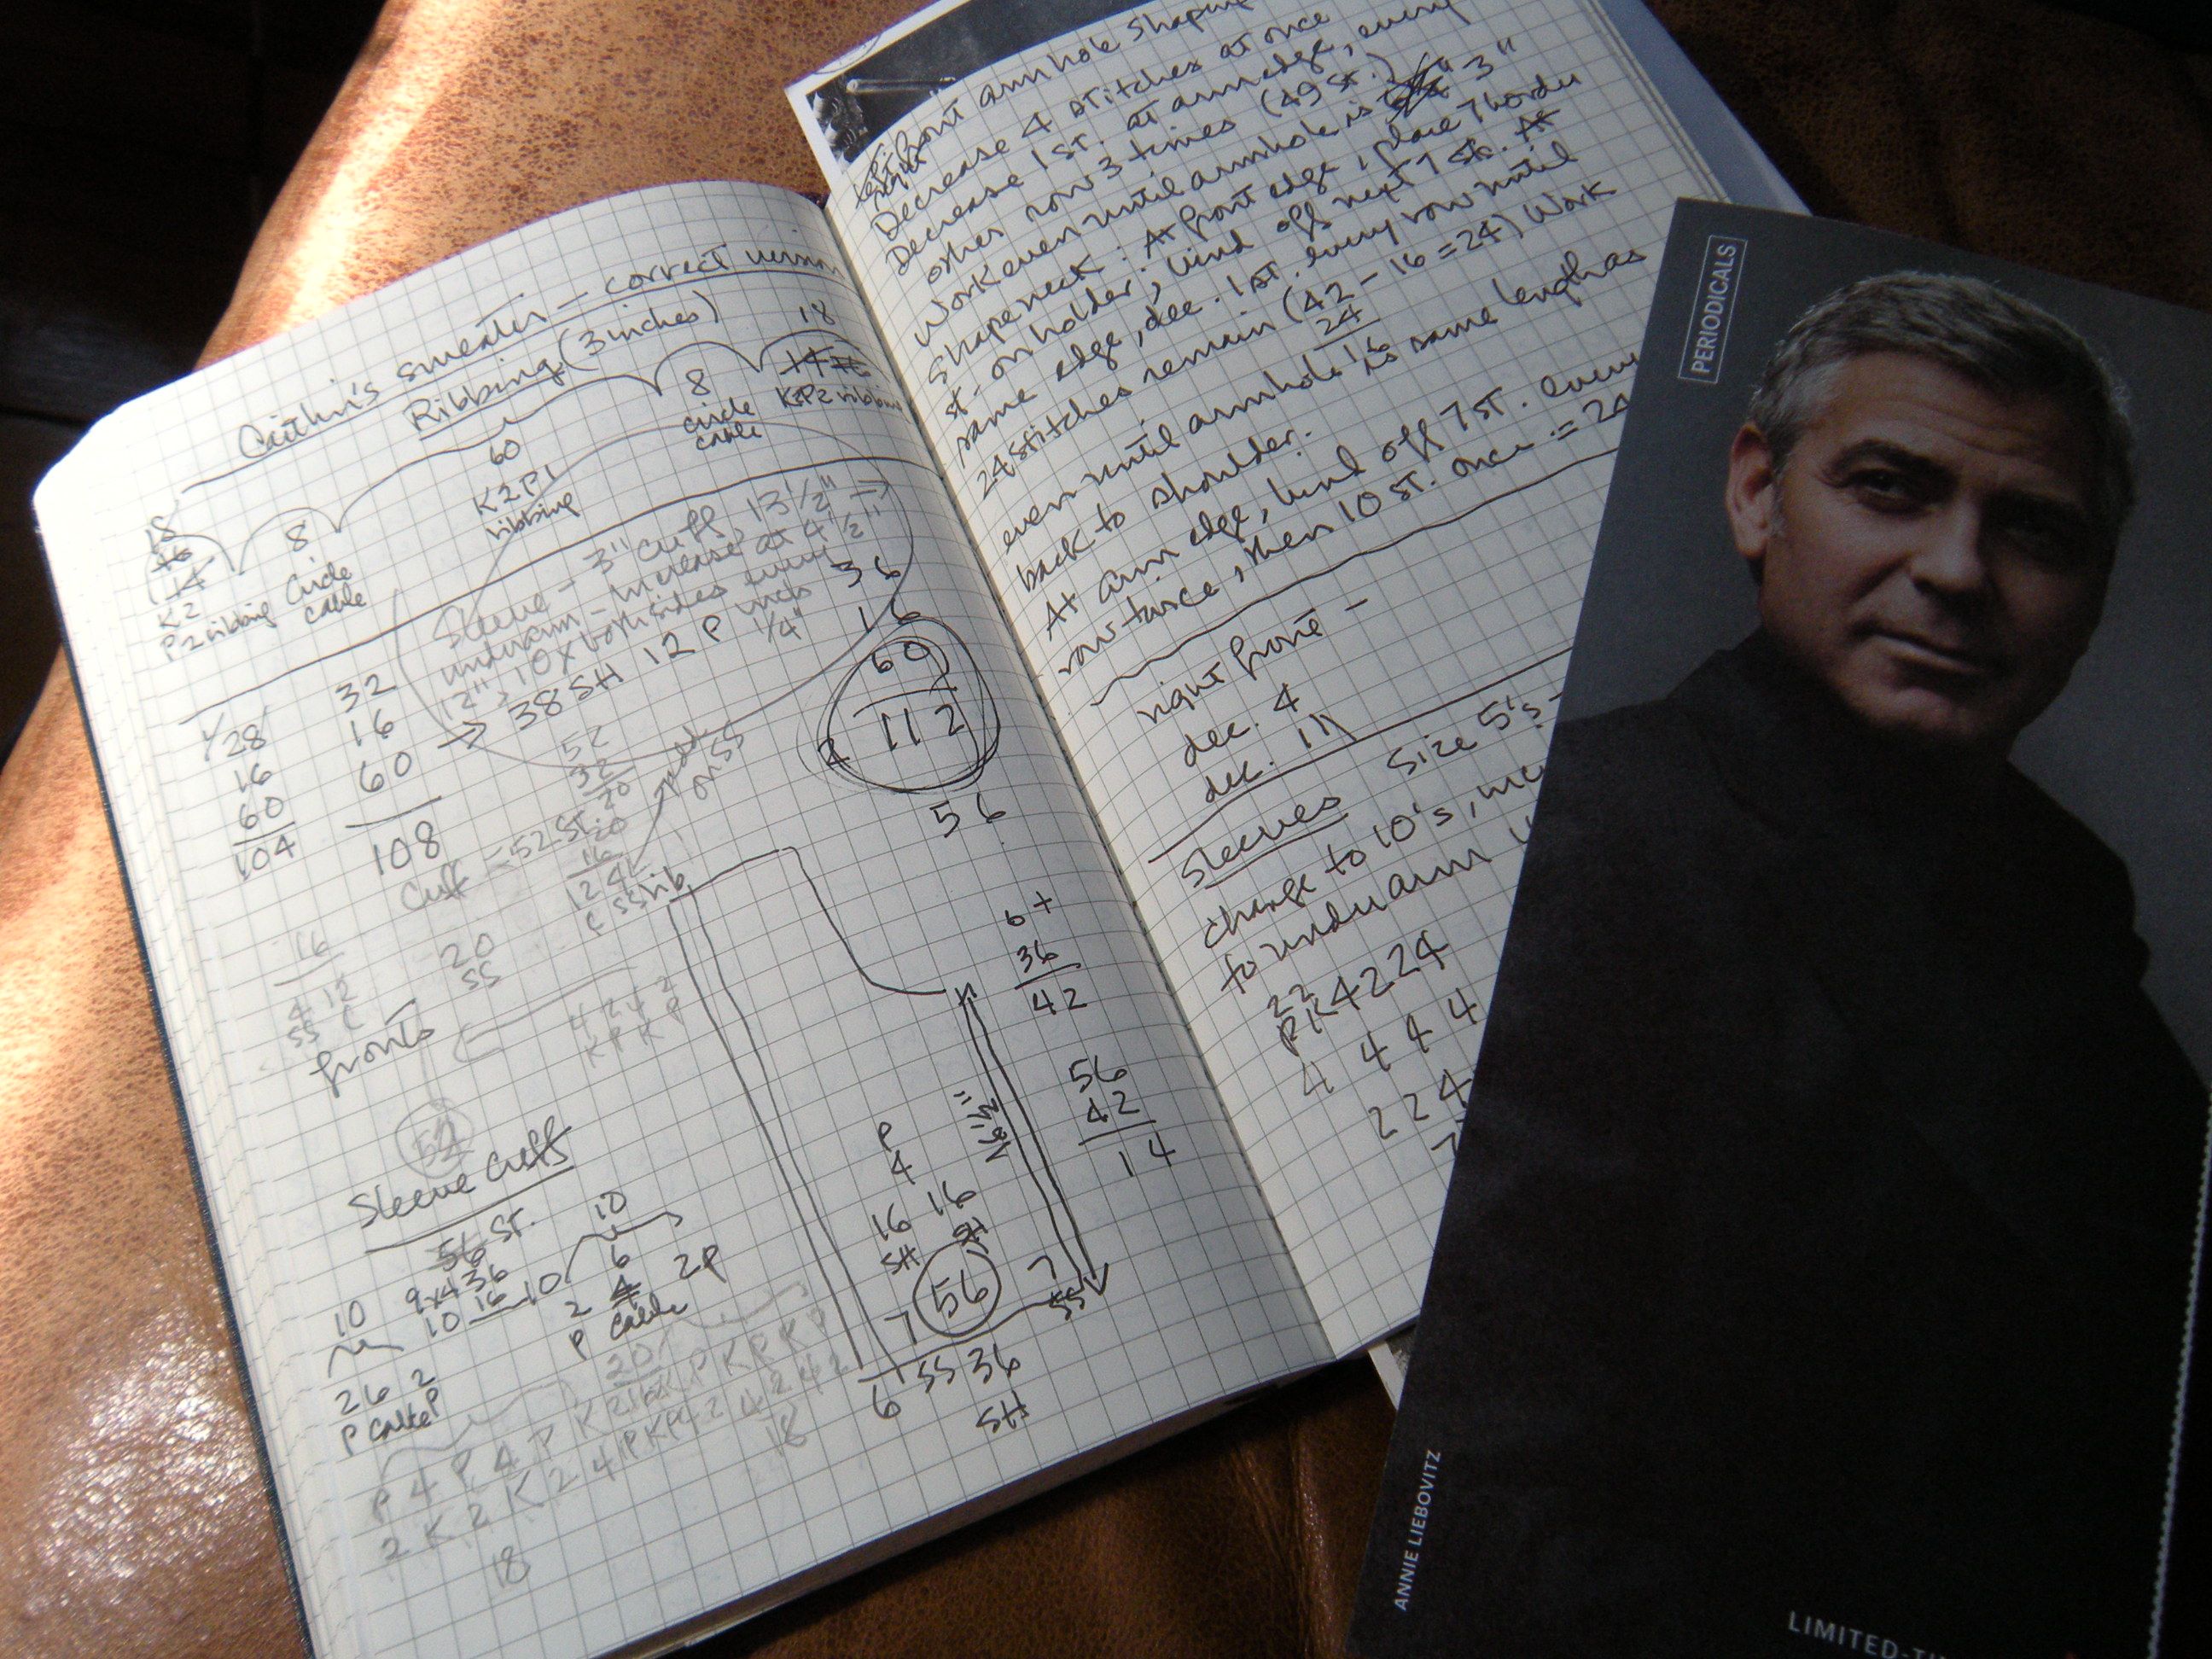 Caitlin's sweater - correct version
Ribbing (3 inches)
18
8
60
8
18
16
14
K2
P2 ribbing
Circle
cable
K2P1
ribbing
circle
cable
K2P2 ribbing
Sleeve - 3" cuff, 13 1/2" →
underarm - increase at 4 1/2"
12", 10x both sides every
inch
1/4"
→ 38 SH 12 P
28
16
60
104
32
16
60
108
36
16
60
112
56
52
32
20
Cuff - 52 St.
on SS
20
16
12 4
C SS rib
16
4 12
SS C
20
SS
4 2 4 2
K P K P
fronts
52
6+
36
42
56
42
14
P
4
16 16
SH SH
56
7
7
SS
6 SS 36
SH
Sleeve Cuffs
56 ST.
9x4 36
10 16 10
10
10
6
2 4 2P
P cable
2 6 2
P cable P
20
18
18
left front armhole shaping
right
Decrease 4 stitches at once
Decrease 1 ST. at arm edge, every
other row 3 times (49 st.)
Work even until armhole is 3"
Shape neck: At front edge, place 7 border
st. on holder, bind off next 7 sts. At
same edge, dec. 1 ST. every row until
24 stitches remain (42 - 16 = 24) Work
24
16
even until armhole is same length as
back to shoulder.
At arm edge, bind off 7 ST. every
row twice, then 10 ST. once = 24
right front -
dec. 4
dec. 111
Sleeves Size 5's -
change to 10's, inc
to underarm
22
PK4224
4 4 4 4
2 2 4
PERIODICALS
ANNIE LIEBOVITZ
LIMITED-TI